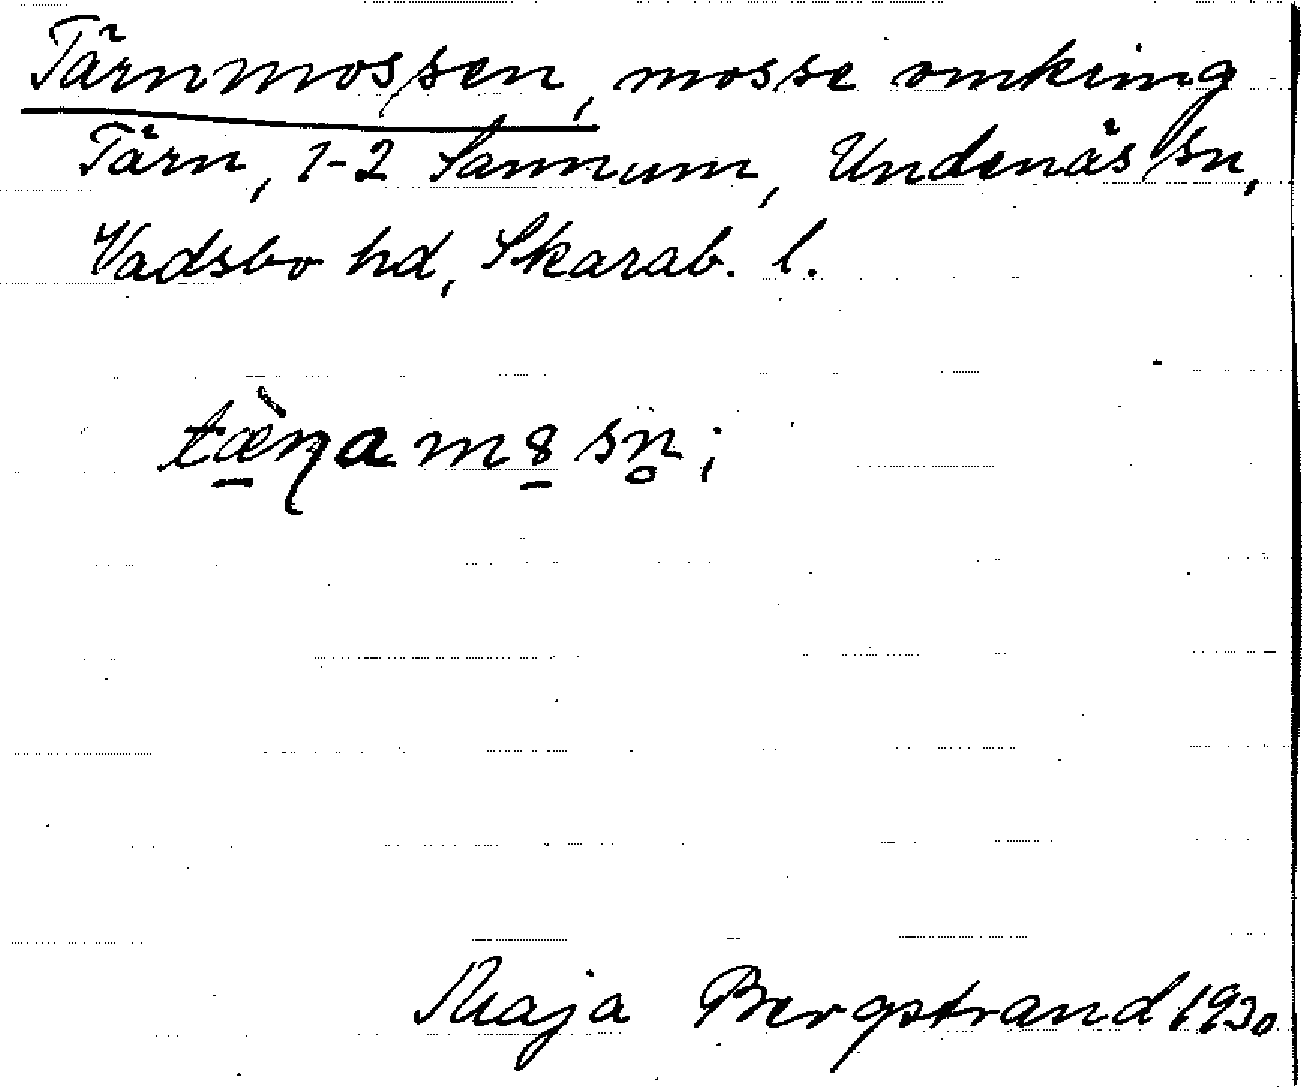 Tärnmossen, mosse omkring
Tärn, 1-2 Sannum, Undenäs sn,
Vadsbo hd, Skarab. l.
tæ̠̀ɳam8̠sn̥;
Maja Bergstrand 1930